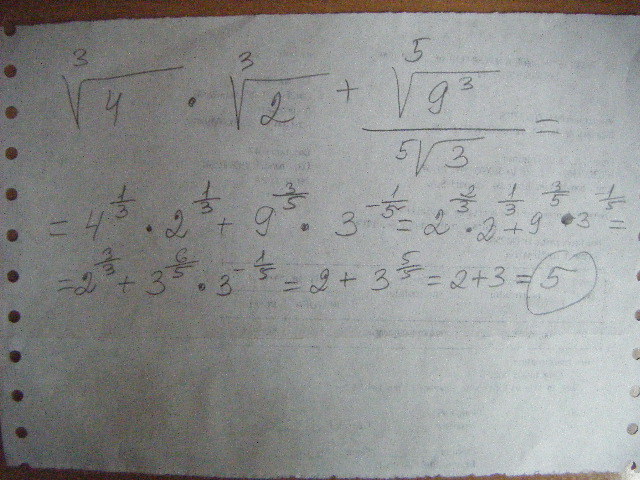 ∛4 · ∛2 + ⁵√9³ / ⁵√3 =
= 4^(1/3) · 2^(1/3) + 9^(3/5) · 3^(-1/5) = 2^(2/3) · 2^(1/3) + 9^(3/5) · 3^(-1/5) =
= 2^(3/3) + 3^(6/5) · 3^(-1/5) = 2 + 3^(5/5) = 2 + 3 = 5